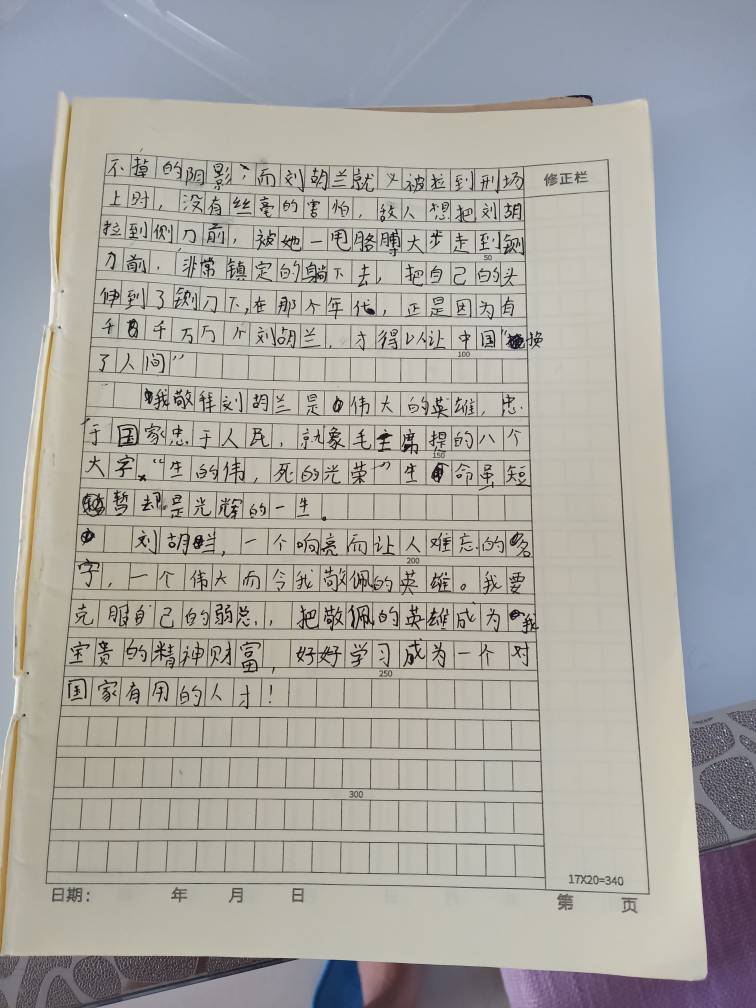 不掉的阴影；而刘胡兰就义被拉到刑场
修正栏
上时，没有丝毫的害怕，敌人想把刘胡
拉到侧刀前，被她一甩胳膊大步走到铡
50
刀前，非常镇定的躺下去，把自己的头
伸到了铡刀下，在那个年代，正是因为有
千千万万个刘胡兰，才得以让中国“换
100
了人间”
我敬拜刘胡兰是伟大的英雄，忠
于国家忠于人民，就象毛主席提的八个
150
大字，“生的伟，死的光荣”生命虽短
暂却是光辉的一生。
刘胡兰，一个响亮而让人难忘的名
200
字，一个伟大而令我敬佩的英雄。我要
克服自己的弱点，把敬佩的英雄成为我
宝贵的精神财富，好好学习成为一个对
250
国家有用的人才！
300
17X20=340
日期： 年 月 日
第 页